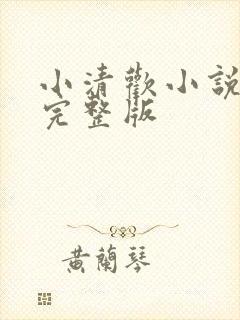 小清歡小說
完整版
黄蘭琴